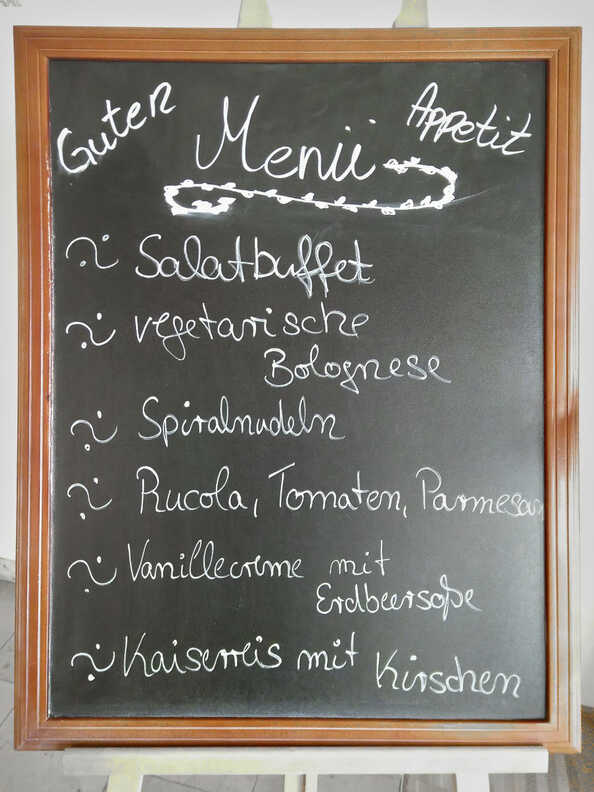 Guten Appetit
Menü
Salatbuffet
vegetarische
Bolognese
Spiralnudeln
Rucola, Tomaten, Parmesan
Vanillecreme mit
Erdbeersoße
Kaiserreis mit Kirschen